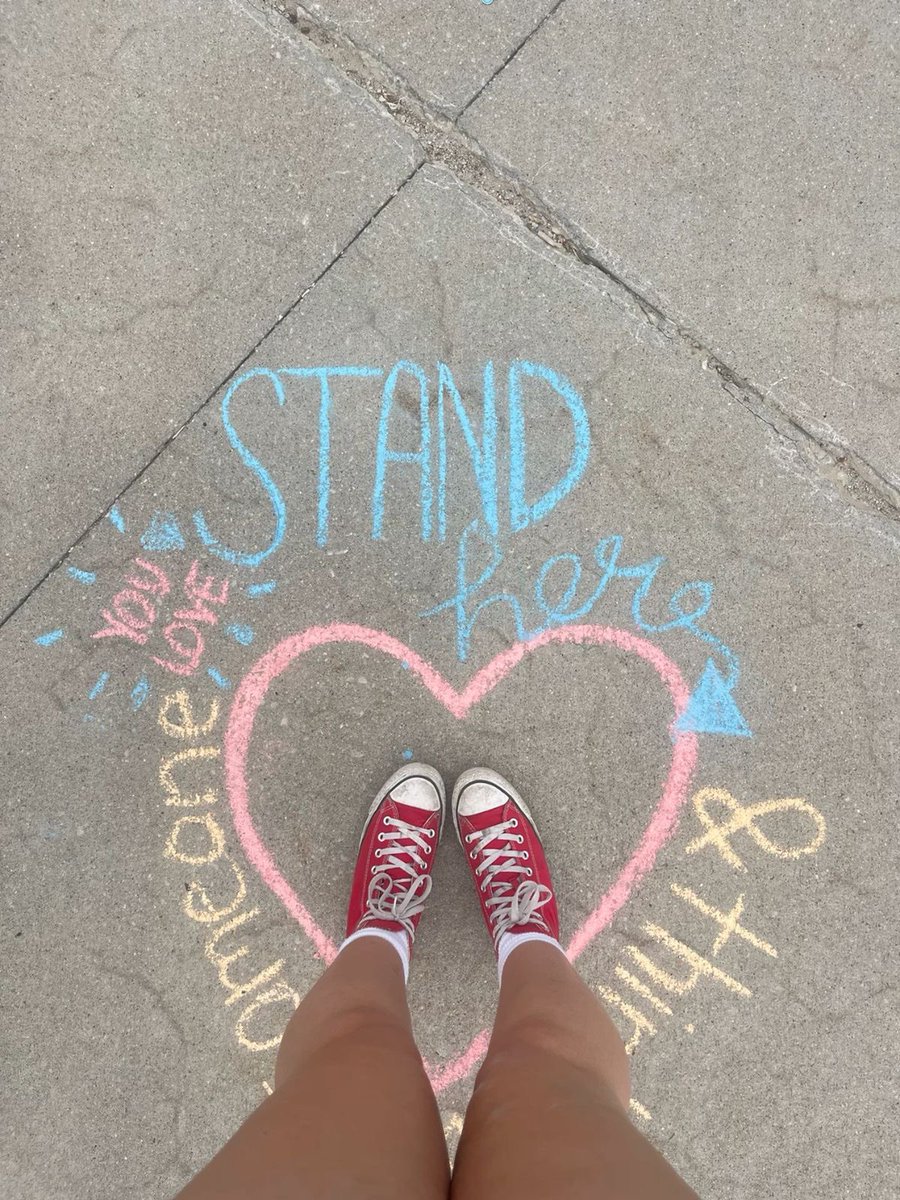 STAND
here
& thin
omeone
YOU
LOVE